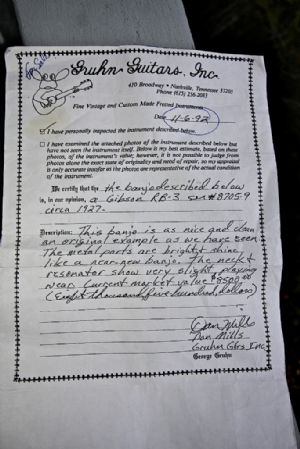 Gruhn Guitars, Inc.
410 Broadway • Nashville, Tennessee 37203
Phone (615) 256-2033
Fine Vintage and Custom Made Fretted Instruments
Date 11-6-92
I have personally inspected the instrument described below.
I have examined the attached photos of the instrument described below but
have not seen the instrument itself. Below is my best estimate, based on these
photos, of the instrument's value; however, it is not possible to judge from
photos alone the exact state of originality and need of repair, so my appraisal
is only accurate insofar as the photos are representative of the actual condition
of the instrument.
We certify that the the banjo described below
is, in our opinion, a Gibson RB-3 ser# 8705-9
circa 1927.
Description: This banjo is as nice and clean
an original example as we have seen
The metal parts are bright & shine
like a near-new banjo. The neck &
resonator show very slight playing
wear. Current market value $8500.00
(Eight thousand five hundred dollars)
Dan Mills
Dan Mills
Gruhn Gtrs Inc
George Gruhn